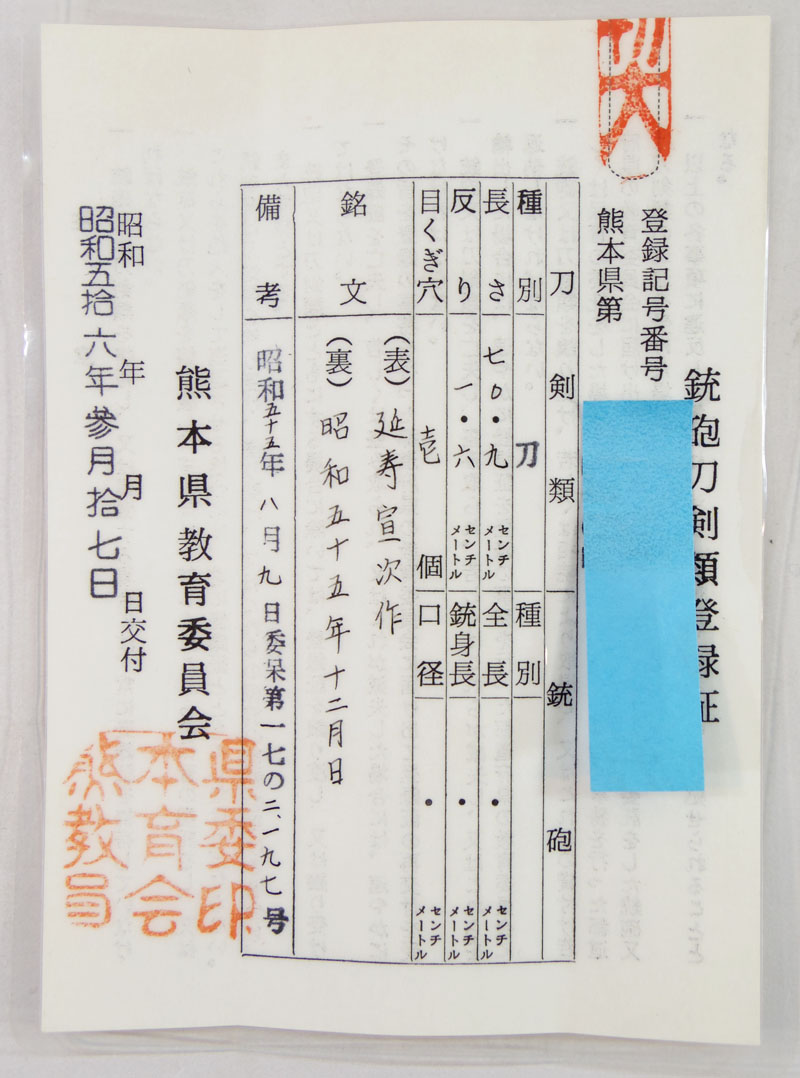 銃砲刀剣類登録証
登録記号番号
熊本県第
刀剣類
銃砲
種別 刀
種別
長さ 七〇・九 センチメートル
全長 ・ センチメートル
反り 一・六 センチメートル
銃身長 ・ センチメートル
目くぎ穴 壱個
口径 ・ センチメートル
銘文
(表)延寿宣次作
(裏)昭和五十五年十二月日
備考
昭和五十五年八月九日委保第一七の二、一九七号
熊本県教育委員会
昭和 年 月 日交付
昭和五拾六年参月拾七日
県委印
本育会
熊教員